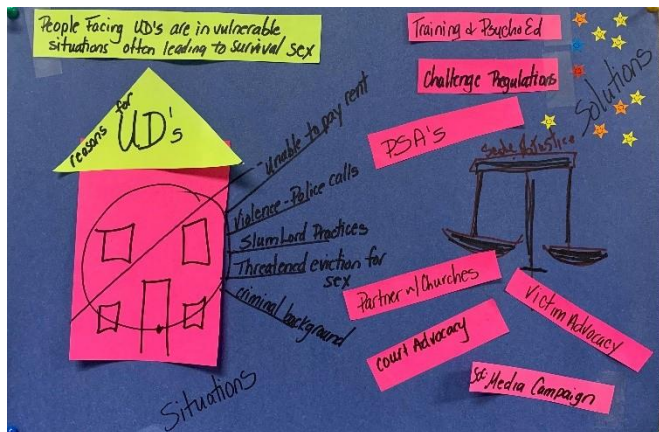 People Facing UD's are in vulnerable
situations often leading to survival sex
reasons for
UD's
- Unable to pay rent
Violence - Police calls
SlumLord Practices
Threatened eviction for
sex
criminal background
Situations
Training & PsychoEd
Challenge Regulations
PSA's
Solutions
Scale of Justice
Partner w/ Churches
Court Advocacy
Victim Advocacy
Media Campaign